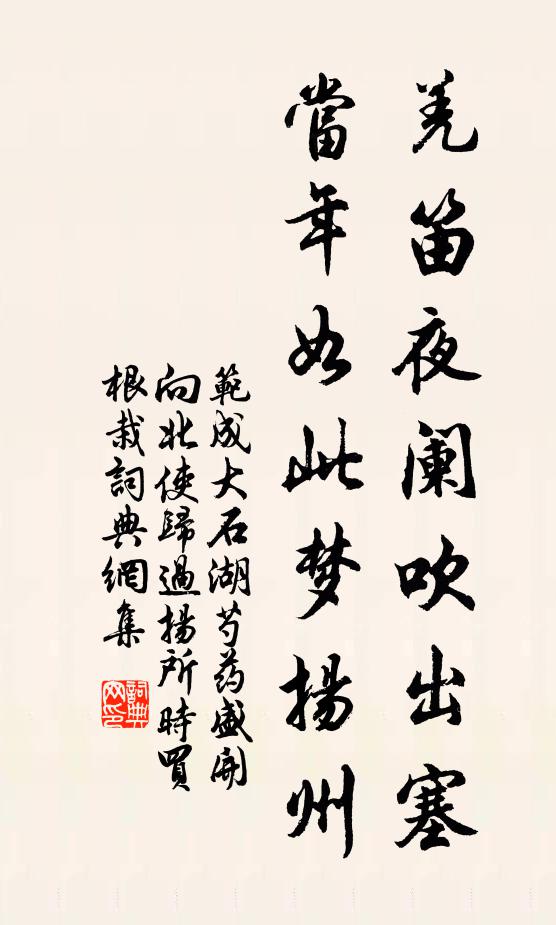 羌笛夜阑吹出塞
當年如此梦揚州
範成大石湖芍药盛開
向北使歸過揚所時買
根栽詞典網集
詞典网印